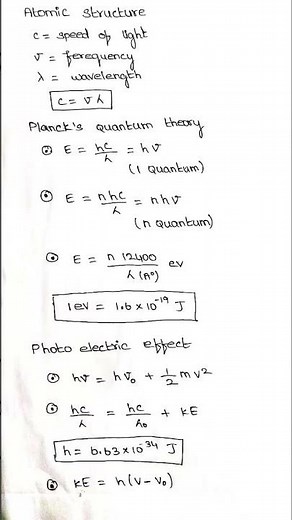 Atomic structure
c = speed of light
ν = ferequency
λ = wavelength
c = νλ
Planck's quantum theory
⊙ E = hc/λ = hν
(1 Quantum)
⊙ E = nhc/λ = nhν
(n Quantum)
⊙ E = n 12400/λ(A°) ev
1ev = 1.6×10⁻¹⁹ J
Photo electric effect
⊙ hν = hν₀ + 1/2 mv²
⊙ hc/λ = hc/λ₀ + KE
h = 6.63×10⁻³⁴ J
⊙ KE = h(ν-ν₀)